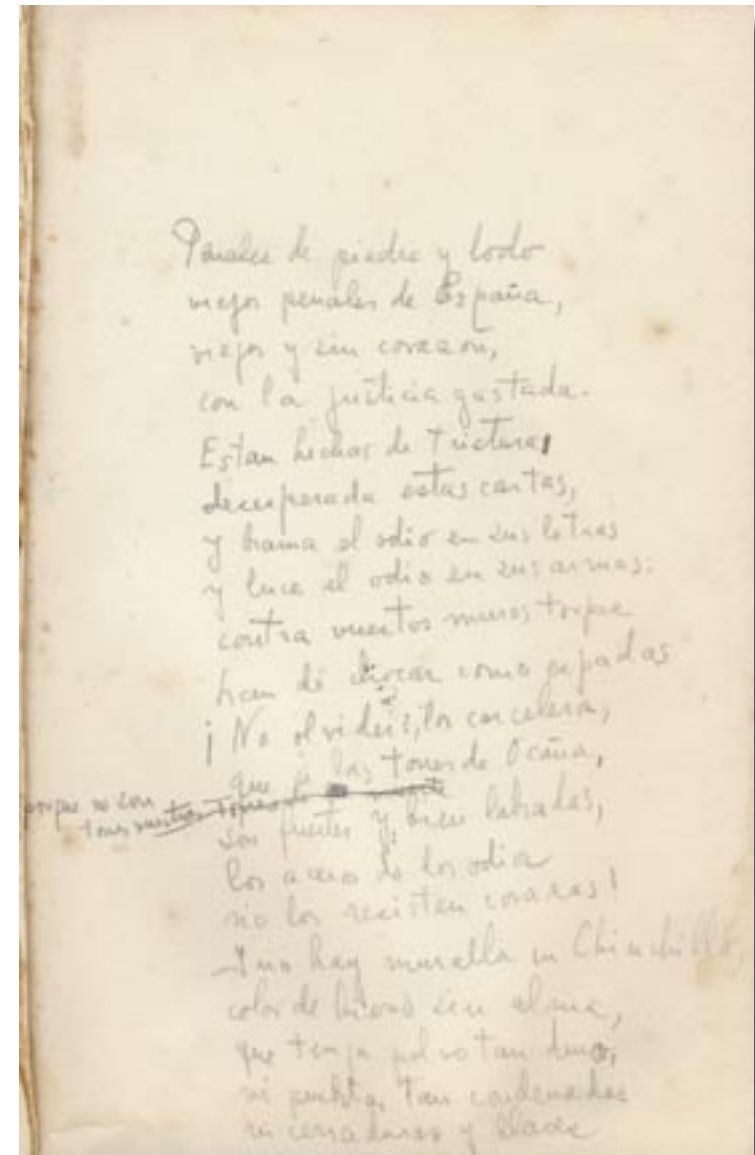 Penales de piedra y lodo
viejos penales de España,
viejos y sin corazón,
con la justicia gastada.
Estan hechas de tristura
desesperada estas cartas,
y brama el odio en sus letras
y luce el odio en sus armas:
contra vuestros muros torpes
han de chocar como espadas
¡No olvideis, los carceleros,
que si las torres de Ocaña,
porque no son
son fuertes y bien labradas,
los aceros de los odios
no los resisten corazas!
Y no hay muralla en Chinchilla,
color de hierro sin alma,
que tenga polvo tan duro,
ni puertas tan condenadas
ni cerraduras y llaves